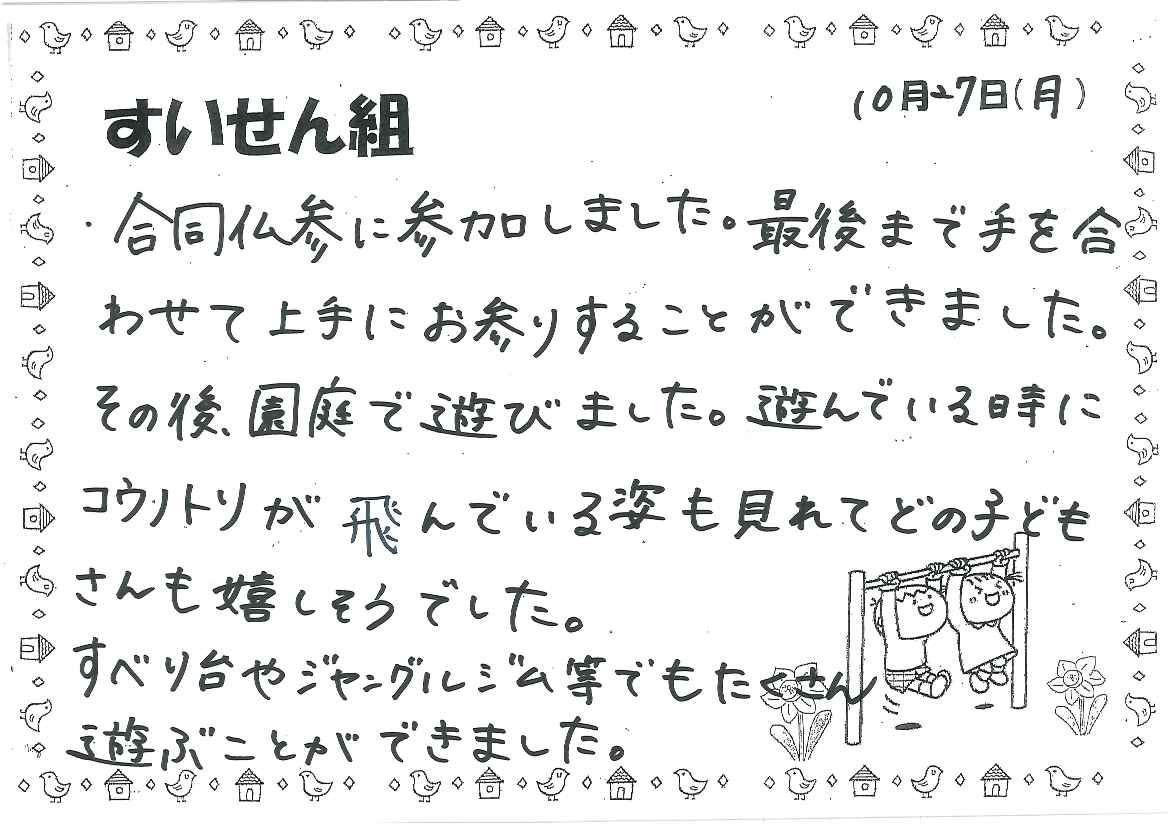 すいせん組
10月27日(月)
・合同仏参に参加しました。最後まで手を合
わせて上手にお参りすることができました。
その後、園庭で遊びました。遊んでいる時に
コウノトリが飛んでいる姿も見れてどの子ども
さんも嬉しそうでした。
すべり台やジャングルジム等でもたくさん
遊ぶことができました。